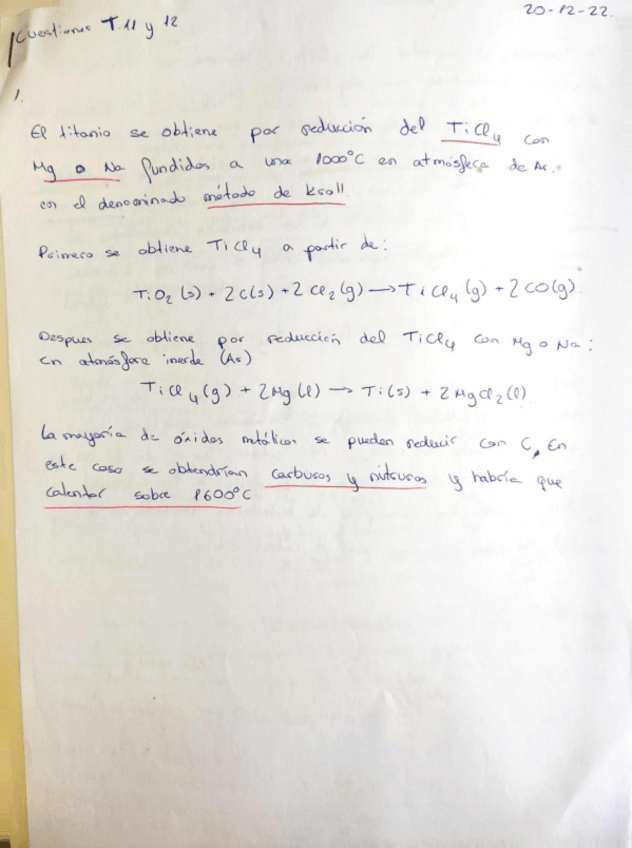 20-12-22.
Cuestiones T.11 y 12
1.
El titanio se obtiene por reducción del TiCl4 con
Mg o Na fundidos a una 1000°C en atmósfera de Ar.
en el denominado método de Kroll
Primero se obtiene TiCl4 a partir de:
TiO2 (s) + 2C(s) + 2 Cl2 (g) → TiCl4 (g) + 2 CO(g).
Despues se obtiene por reducción del TiCl4 con Mg o Na:
en atmósfera inerte (Ar)
TiCl4 (g) + 2Mg (l) → Ti(s) + 2MgCl2(l).
La mayoría de óxidos metálicos se pueden reducir con C, En
este caso se obtendrían carburos y nitruros y habría que
calentar sobre 1600°C